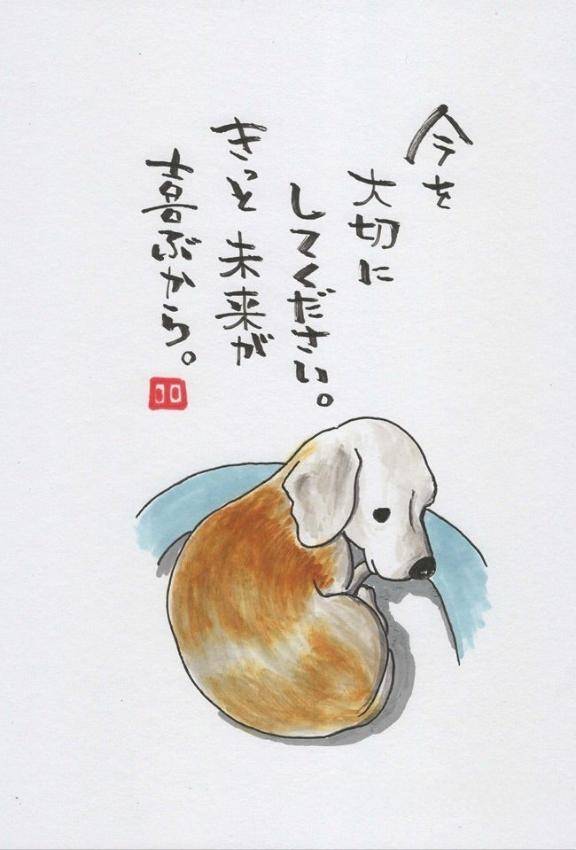 今を
大切に
してください。
きっと未来が
喜ぶから。